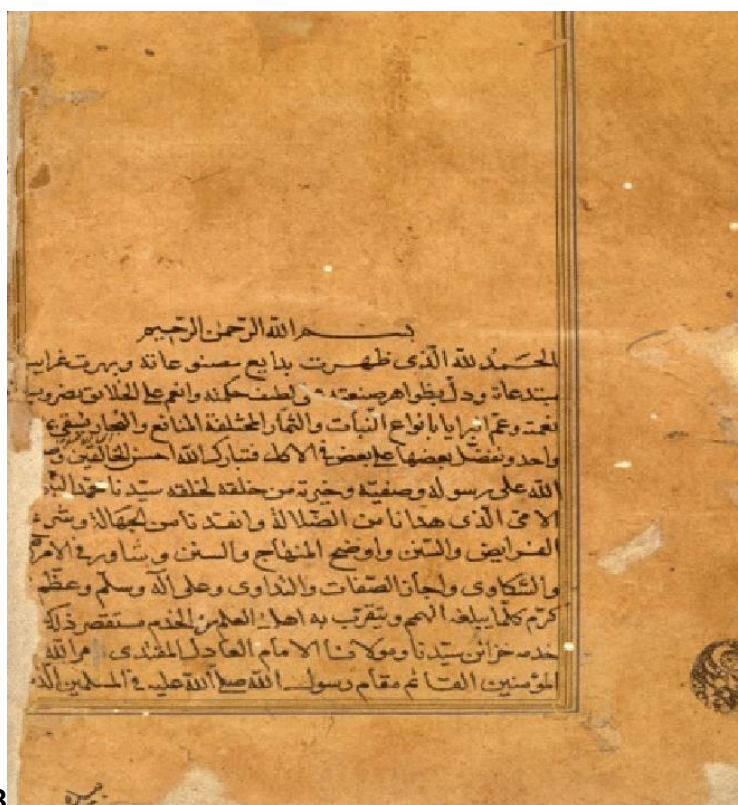 بسم الله الرحمن الرحيم
الحمد لله الذى ظهرت بدايع مصنوعاته وبهرت غرايب
مبتدعاته ودل بظواهر صنعته ولطيف حكمته وانعم على الخلائق بضروب
نعمه وعم البرايا بانواع النبات والثمار المختلفة المنافع والنجار يسقى
واحد ونفضل بعضها على بعض فى الاكل فتبارك الله احسن الخالقين
الله على رسوله وصفيه وخيرته من خلقه لخلقه سيدنا محمد النبى
الامى الذى هدانا من الضلالة وانقدنا من الجهالة وشرع
الفرايض والسنن واوضح المنهاج والسنن وشاور فى الامر
والشكاوى واجاز الصفات والتداوى وعلى اله وسلم وعظم
كرم كلما يبلغه الهمم ويتقرب به اهل العلم من الخدم مستقصر ذلك
خدمه خزائن سيدنا ومولانا الامام العادل المقتدى الله
المؤمنين القائم مقام رسول الله صلى الله عليه فى المسلمين
B